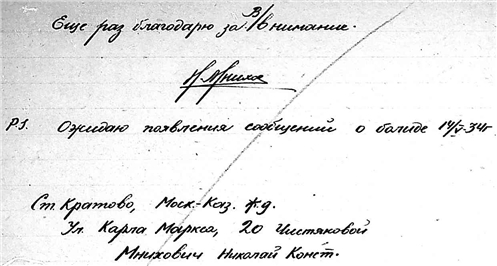 Еще раз благодарю за В/внимание.
Н. Мних
P.S. Ожидаю появления сообщений о болиде 14/V-34г
Ст. Кратово, Моск.-Каз. ж.д.
Ул. Карла Маркса, 20 Чистяковой
Мнихович Николай Конст.